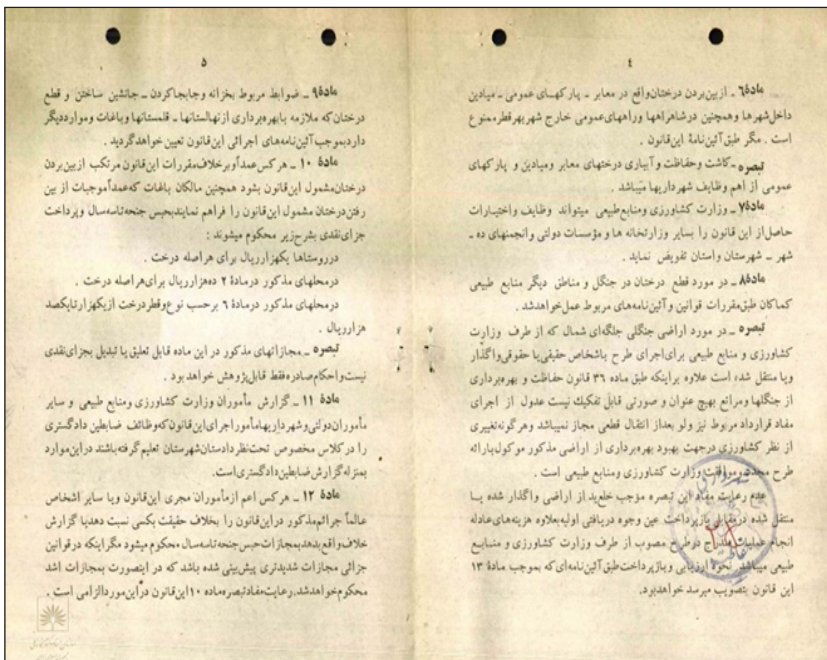 ٤
مادهٔ۶ ـ ازبین‌بردن درختان‌واقع در معابر ـ پارکهای عمومی ـ میادین
داخل‌شهرها وهمچنین درشاهراهها وراههای‌عمومی خارج شهربهرقطرممنوع
است . مگر طبق‌آئین‌نامهٔ این‌قانون .
تبصره ـ کاشت وحفاظت وآبیاری درختهای معابر ومیادین و پارکهای
عمومی از اهم وظایف شهرداریها میباشد .
مادهٔ۷ ـ وزارت کشاورزی ومنابع‌طبیعی میتواند وظایف واختیارات
حاصل‌از این قانون را بسایر وزارتخانه ها و مؤسسات دولتی وانجمنهای ده ـ
شهر ـ شهرستان واستان تفویض نماید .
مادهٔ۸ ـ در مورد قطع درختان در جنگل و مناطق دیگر منابع طبیعی
کماکان طبق‌مقررات قوانین وآئین‌نامه‌های مربوط عمل‌خواهدشد .
تبصره ـ در مورد اراضی جنگلی جلگه‌ای شمال که از طرف وزارت
کشاورزی و منابع طبیعی برای‌اجرای طرح باشخاص حقیقی‌یا حقوقی‌واگذار
ویا منتقل شده است علاوه براینکه طبق ماده ۳۶ قانون حفاظت و بهره‌برداری
از جنگلها ومراتع بهیچ عنوان و صورتی قابل تفکیك نیست عدول از اجرای
مفاد قرارداد مربوط نیز ولو بعداز انتقال قطعی مجاز نمیباشد وهرگونه‌تغییری
از نظر کشاورزی درجهت بهبود بهره‌برداری از اراضی مذکور موکول‌بارائه
طرح مجددوموافقت وزارت کشاورزی ومنابع طبیعی است .
عدم رعایت مفاد این تبصره موجب خلع‌ید از اراضی واگذار شده یا
منتقل شده درمقابل بازپرداخت عین وجوه دریافتی اولیه‌بعلاوه هزینه‌های‌عادله
انجام عملیات مندرج درطرح مصوب از طرف وزارت کشاورزی و منابع
طبیعی میباشد. نحوهٔ ارزیابی وبازپرداخت‌طبق‌آئین‌نامه‌ای که بموجب مادهٔ ۱۳
این قانون بتصویب میرسد خواهدبود.
۵
مادهٔ۹ ـ ضوابط مربوط بخزانه وجابجاکردن ـ جانشین ساختن و قطع
درختان‌که ملازمه بابهره‌برداری ازنهالستانها ـ قلمستانها وباغات وموارددیگر
داردبموجب‌آئین‌نامه‌های اجرائی این‌قانون تعیین خواهدگردید .
مادهٔ ۱۰ ـ هرکس‌عمداًوبرخلاف‌مقررات این‌قانون مرتکب ازبین‌بردن
درختان‌مشمول این‌قانون بشود همچنین مالکان باغات که‌عمداًموجبات از بین
رفتن‌درختان مشمول این‌قانون را فراهم نمایندبحبس جنحه‌تاسه‌سال وپرداخت
جزای‌نقدی بشرح‌زیر محکوم میشوند :
درروستاها یکهزارریال برای هراصله درخت .
درمحلهای مذکور درمادهٔ ۲ ده‌هزارریال برای‌هراصله درخت .
درمحلهای مذکور درمادهٔ ۶ برحسب نوع‌وقطردرخت ازیکهزارتایکصد
هزارریال .
تبصره ـ مجازاتهای مذکور در این ماده قابل تعلیق یا تبدیل بجزای‌نقدی
نیست‌واحکام‌صادره‌فقط قابل‌پژوهش خواهد بود .
مادهٔ ۱۱ ـ گزارش مأموران وزارت کشاورزی ومنابع طبیعی و سایر
مأموران‌دولتی‌وشهرداریهامأموراجرای این‌قانون‌که‌وظائف ضابطین دادگستری
را درکلاس مخصوص تحت‌نظردادستان‌شهرستان تعلیم‌گرفته‌باشند دراین‌موارد
بمنزله‌گزارش‌ضابطین‌دادگستری‌است.
مادهٔ ۱۲ ـ هرکس اعم ازمأموران مجری این‌قانون ویا سایر اشخاص
عالماً جرائم‌مذکور دراین‌قانون را بخلاف حقیقت بکسی نسبت دهدیا گزارش
خلاف‌واقع‌بدهدبمجازات‌حبس‌جنحه‌تاسه‌سال محکوم میشود مگراینکه درقوانین
جزائی مجازات شدیدتری پیش‌بینی شده باشد که در اینصورت بمجازات اشد
محکوم‌خواهدشد.رعایت‌مفادتبصره‌ماده ۱۰این‌قانون دراین‌موردالزامی است .